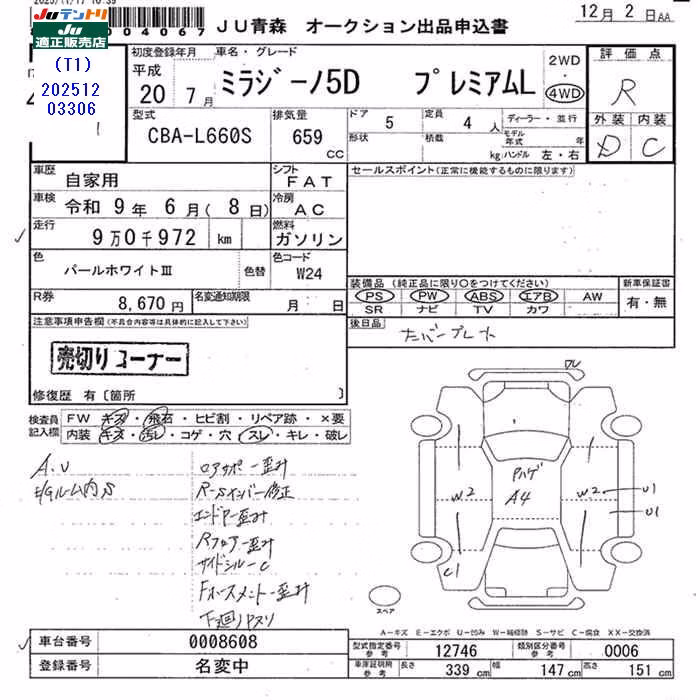 JUテントリ
JU適正販売店
(T1)
202512
03306
4067
JU青森 オークション出品申込書
12月 2日AA
初度登録年月
平成
20 7月
車名・グレード
ミラジーノ5D プレミアムL
2WD
・
4WD
評価点
R
外装 内装
D C
型式
CBA-L660S
排気量
659
CC
ドア 5
定員 4 人
形状
積載 kg
ディーラー・並行
モデル年式 年式
ハンドル 左・右
車歴 自家用
シフト FAT
車検 令和 9年 6月(8日)
冷房 AC
走行 9万0千972 km
燃料 ガソリン
色 パールホワイトⅢ
色替
色コード W24
R券 8,670円
名変通知期限 月 日
セールスポイント(正常に機能するものに限ります)
装備品 (純正品に限り○をつけてください)
PS PW ABS エアB AW
SR ナビ TV カワ
新車保証書
有・無
後日品 ナンバープレート
注意事項申告欄(不具合内容等は具体的に記入して下さい)
売切りコーナー
修復歴 有〔箇所 〕
検査員記入欄
FW キズ・飛石・ヒビ割・リペア跡・×要
内装 キズ・汚レ・コゲ・穴・スレ・キレ・破レ
A.U
E/Gルーム内S
ロアサポー歪計
R-Sインバー修正
エンドP歪計
Rフロアー歪計
サイドシルーC
Fホースメントー歪計
下廻ノサスリ
W2
W2
U1
U1
Pハゲ
A4
C1
スペア
A-キズ E-エクボ U-凹み W-補修跡 S-サビ C-腐食 XX-交換済
車台番号 0008608
登録番号 名変中
型式指定番号 参考 12746
類別区分番号 参考 0006
車庫証明用 参考 長さ 339 cm 幅 147 cm 高さ 151 cm